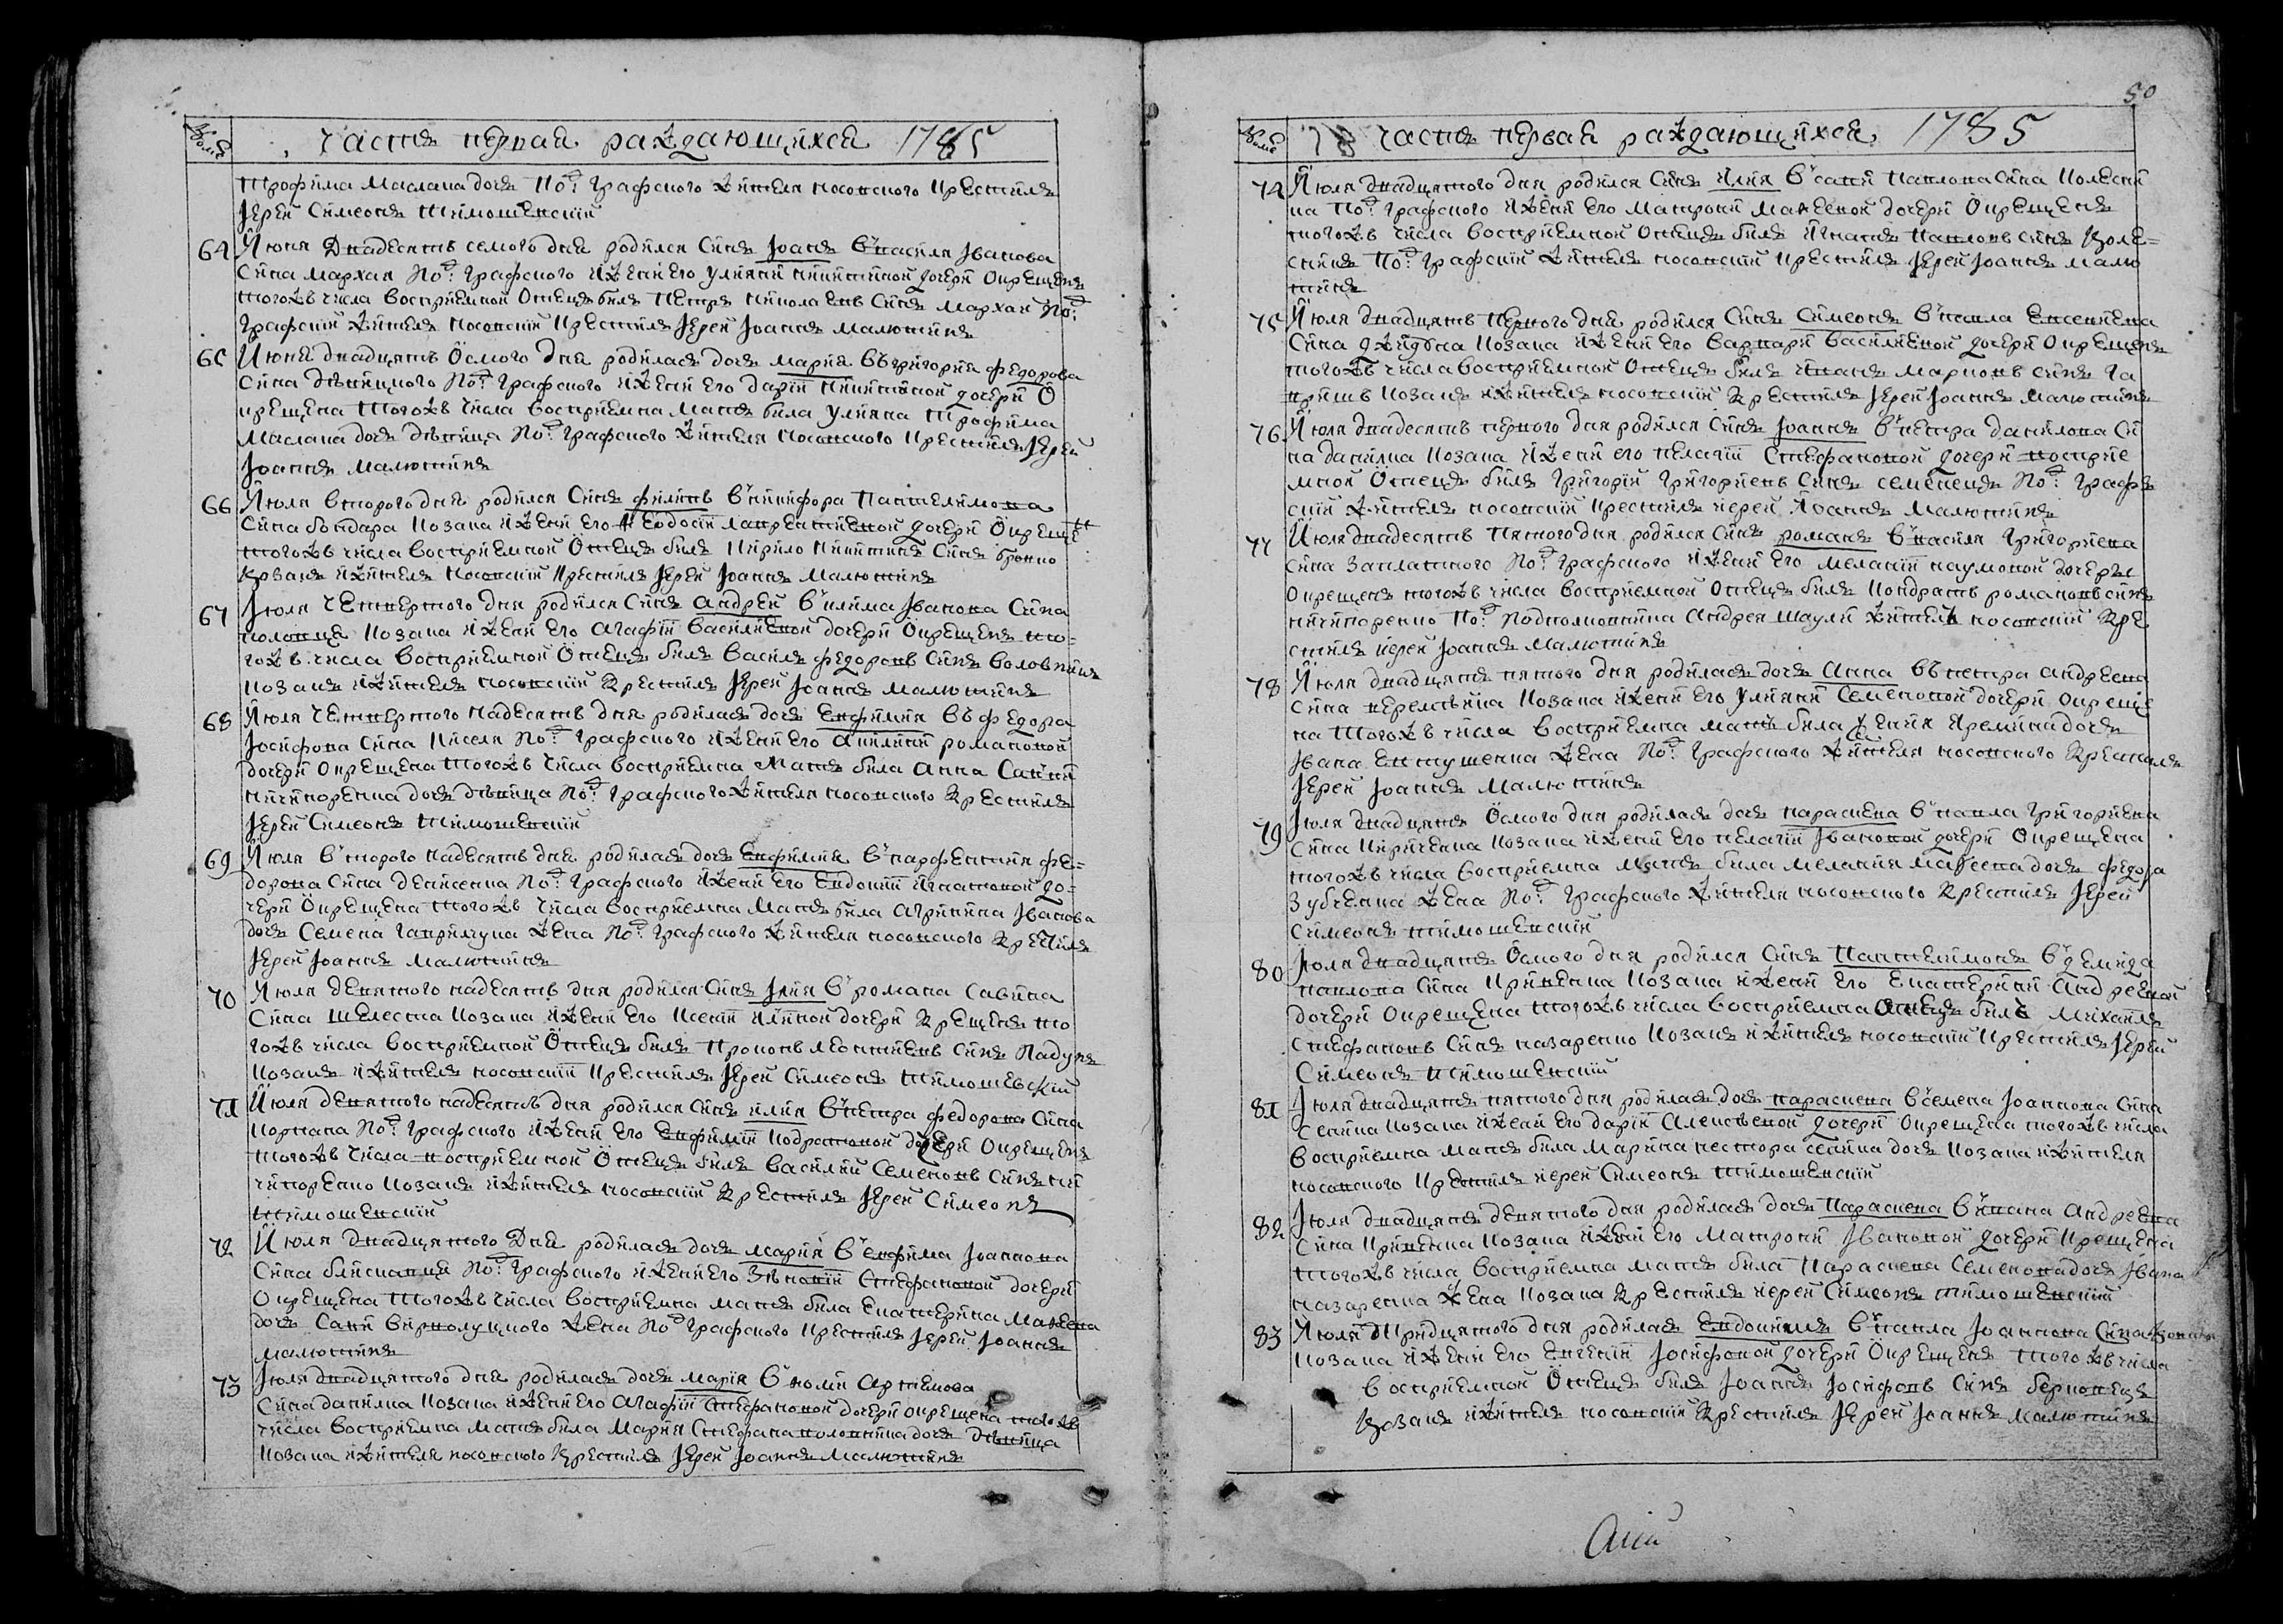 Номе Часть первая раждающихся 1785
трофима маслака дочь по҃д: графского жителя носовского крестилъ
Іерей Симеонъ Тимошевскій
64 Июня двадесять семого дня родился Синъ Іоанъ в василя Іванова
Сина мархая по҃д: графского и жени его улияни никитиной дочери окрещенъ
тогожъ числа восприемной отецъ билъ петръ николаевъ Синъ мархай по҃д:
графскій житель носовскій крестилъ Іерей Іоаннъ малютинъ
65 Июня двадцять осмого дня родилась дочь мария въ григория федорова
Сина дѣвицкого по҃д: графского и жени его дарїи никитиной дочери о
крещена тогожъ числа восприемна мать била улияна трофима
маслака дочь дѣвица по҃д: графского жителя носовского крестилъ Іерей
Іоаннъ малютинъ
66 Июля второго дня родился Синъ филипъ в никифора пантелимона
Сина бондара козака и жени его феодосїи лаврентиевой дочери окреще н
тогожъ числа восприемной отецъ билъ кирило никитинъ Синъ бровко
козакъ и житель носовскій крестилъ Іерей Іоаннъ малютинъ
67 Июля четвертого дня родился Синъ андрей в клима Іванова Сина
козака и жени его агафїи василиевой дочери окрещенъ то=
гожъ числа восприемной отецъ билъ василь федоровъ Синъ
козакъ и житель носовскій крестилъ Іерей Іоаннъ малютинъ
68 Июля четвертого надесять дня родилась дочь евфимия въ федора
Іосифова Сина киселя по҃д: графского и жени его акилини романовой
дочери окрещена тогожъ числа восприемна мать била анна савки
ничипоренка дочь дѣвица по҃д: графского жителя носовского крестилъ
Іерей Симеонъ Тимошевскій
69 Июля второго надесять дня родилась дочь евфимия в парфентия фе=
дорова Сина денисенка по҃д: графского и жени его евдокїи игнатовой до=
чери окрещена тогожъ числа восприемна мать била агрипина Іванова
дочь семена гаврилчука жена по҃д: графского жителя носовского крестилъ
Іерей Іоаннъ малютинъ
70 Июля девятого надесять дня родился Синъ Ілия в романа савина
Сина шелеста козака и жени его ксенїи илїиной дочери крещенъ то
гожъ числа восприемной отецъ билъ прокопъ леонтиевъ Синъ падунъ
козакъ и житель носовскій крестилъ Іерей Симеонъ Тимошевскій
71 Июля девятого надесять дня родился Синъ илия в петра федорова Сина
по҃д: графского и жени его евфимїи кодратовой дочери окрещенъ
тогожъ числа восприемной отецъ билъ василий семеновъ Синъ ни
чипоренко козакъ и житель носовскій крестилъ Іерей Симеонъ
Тимошевскій
72 Июля двадцятого дня родилась дочь мария в евфима Іоаннова
Сина по҃д: графского и жени его стефановой дочери
окрещена тогожъ числа восприемна мать била екатерина мафеева
дочь савки жена по҃д: графского крестилъ Іерей Іоаннъ
малютинъ
73 Июля двадцятого дня родилась дочь марія в артемова
Сина данилка козака и жени его агафїи стефановой дочери окрещена тогожъ
числа восприемна мать била мария стефана дочь дѣвица
козака и жителя носовского крестилъ Іерей Іоаннъ малютинъ
50
Номе Часть первая раждающихся 1785
74 Июля двадцятого дня родился Синъ илия в савки павлова Сина колесни
ка по҃д: графского и жени его матрони мафеевой дочери окрещенъ
тогожъ числа восприемной отецъ билъ игнатъ павловъ Синъ коле=
сникъ по҃д: графскій житель носовскій крестилъ Іерей Іоаннъ малю
тинъ
75 Июля двадцять первого дня родился Синъ Симеонъ в павла евсевиева
Сина козака и жени его варвари василиевой дочери окрещенъ
тогожъ числа восприемной отецъ билъ иванъ марковъ Синъ га
козакъ и житель носовскій крестилъ Іерей Іоаннъ малютинъ
76 Июля двадесять первого дня родился Синъ Іоаннъ в петра данилова Си
на данилка козака и жени его пелагїи стефановой дочери восприе
мной отецъ билъ григорїй григориевъ Синъ семенецъ по҃д: граф
скій житель носовскій крестилъ иерей Іоаннъ малютинъ
77 Июля двадесять пятого дня родился Синъ романъ в василя григориева
сина заплатного по҃д: графского и жени его меланїи наумовой дочери
окрещенъ тогожъ числа восприемной отецъ билъ кондратъ романовъ синъ
ничипоренко по҃д: андрея житель носовскій кре
стилъ иерей Іоаннъ малютинъ
78 Июля двадцять пятого дня родилась дочь анна въ петра андреева
Сина перепѣчка козака и жени его улияни семеновой дочери окреще
на тогожъ числа восприемна мать била яремина дочь
Івана евтушенка жена по҃д: графского жителя носовского крестилъ
Іерей Іоаннъ малютинъ
79 Июля двадцять осмого дня родилась дочь параскева в павла григориева
Сина кириченка козака и жени его пелагїи Івановой дочери окрещена
тогожъ числа восприемна мать била мелания мафеева дочь федора
зубченка жена по҃д: графского жителя носовского крестилъ Іерей
Симеонъ тимошевскій
80 Июля двадцять осмого дня родился Синъ пантелимонъ в демида
павлова Сина козака и жени его екатерини андреевой
дочери окрещена тогожъ числа восприемна отецъ билъ михаилъ
стефановъ Синъ назаренко козакъ и житель носовскій крестилъ Іерей
Симеонъ тимошевскій
81 Июля двадцять пятого дня родилась дочь параскева в семена Іоаннова Сина
козака и жени его дарїи алексѣевой дочери окрещена тогожъ числа
восприемна мать била марина нестора дочь козака и жителя
носовского крестилъ иерей Симеонъ тимошевскій
82 Июля двадцять девятого дня родилась дочь параскева в ивана андреева
Сина козака и жени его матрони Івановой дочери крещена
тогожъ числа восприемна мать била параскева семенова дочь Івана
назаренка жена козака крестилъ иерей Симеонъ тимошевскій
83 Июля тридцятого дня родилась в павла Іоаннова Сина
козака и жени его евгенїи Іосифовой дочери окрещенъ тогожъ числа
восприемной отецъ билъ Іоаннъ Іосифовъ Синъ
козакъ и житель носовскій крестилъ Іерей Іоаннъ малютинъ